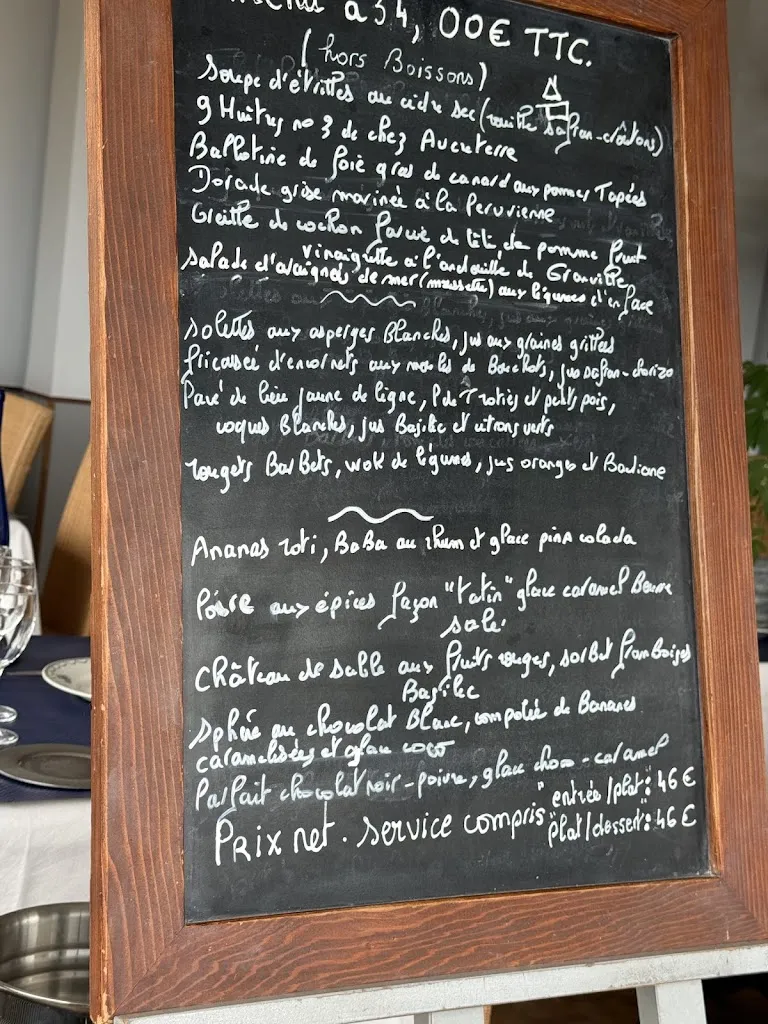 à 54,00€ TTC.
(hors Boissons)
Soupe d'étrilles au cidre sec (rouille safran-croûtons)
9 Huitres no 3 de chez Aucuterre
Ballotine de foie gras de canard aux pommes Tapées
Dorade grise marinée à la Peruvienne
Oreille de cochon farcie de tête de pomme fruit
vinaigrette à l'andouille de Granville
salade d'araignées de mer (moussette) aux légumes d'en face
solettes aux asperges Blanches, jus aux graines grillées
fricassée d'encornets aux moules de Bouchots, jus safran-chorizo
Pavé de lieu jaune de ligne, P de T roties et petits pois,
coques Blanches, jus Basilic et citrons verts
rougets BarBets, wok de légumes, jus oranges et Badiane
Ananas roti, BaBa au rhum et glace pina colada
Poire aux épices façon "tatin" glace caramel Beurre
salé
château de sable aux fruits rouges, sorBet framboises
Basilic
sphère au chocolat Blanc, compotée de Bananes
caramelisées et glace coco
Parfait chocolat noir-poivre, glace choco-caramel
"entrée/plat": 46€
Prix net. service compris
"plat/dessert": 46€